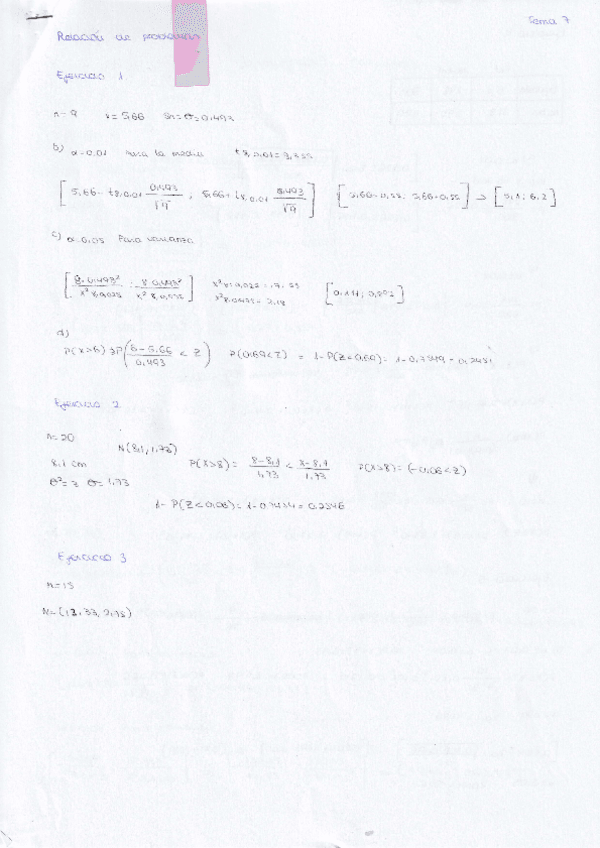 Tema 7
Relación de problemas
Ejercicio 1
n=9 x=5,66 Sn=θ=0,493
b) α=0.01 Para la media t8,0.01=3,355
[5,66-t8,0.01 0,493/√9 ; 5,66+t8,0.01 0,493/√9] [5,66-0,55; 5,66+0,55] → [5,1; 6,2]
c) α=0,05 Para varianza
[8·0,493²/x²8,0,025 ; 8·0,493²/x²8,0,975] x²8,0,025=17,53
x²8,0.975=2,18 [0,111; 0,892]
d)
P(x>6) → P(6-5,66/0,493 < Z) P(0,69<Z) = 1-P(Z<0,69)= 1-0,7549=0,2451
Ejercicio 2
n=20
N(8,1,1,73)
8,1 cm P(x>8)= 8-8,1/1,73 < x-8,1/1,73 P(x>8)=(-0,06<Z)
θ²=3 θ=1,73
1-P(Z<0,06)=1-
Ejercicio 3
n=15
N=(13,33,2,75)